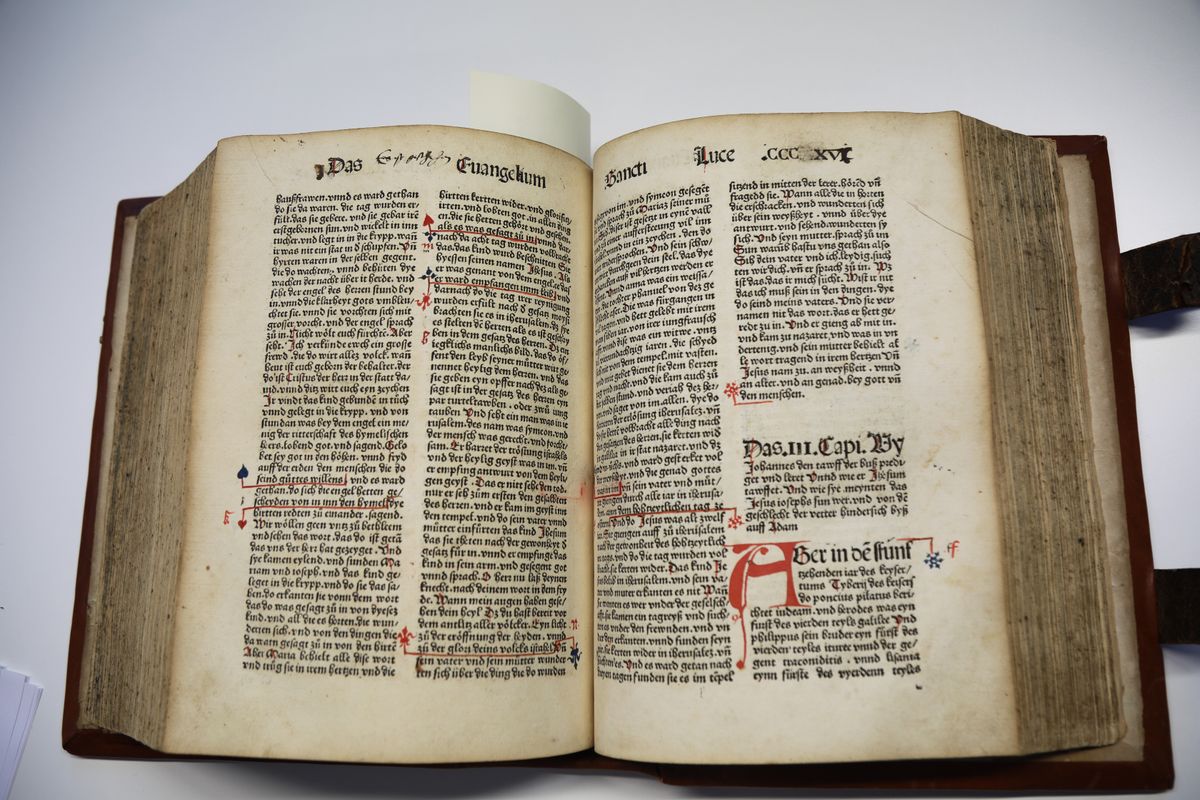 Das Euangelium
haußfrawen. vnnd es ward gethan
do sie da waren. die tag wurden er/
fült. das sie gebere. vnd sie gebar irē
erstgebornen sun. vnd wickelt in inn
tücher. vnd legt in in die kripp. wañ
ir was nit ein stat in d schüpfen. Vñ
hyrten waren in der selben gegent.
die do wachten. vnnd behüten dye
wachen der nacht über ir herde. vnd
seht der engel des herren stund bey
in. vnnd die klarheyt gots vmbleu/
chtet sie. vnnd sie vorchten sich mit
grosser vorcht. vnd der engel sprach
zů in. Nicht wölt euch fürchtē. Aber
seht. Ich verkünde ewch ein grosse
frewd. die do wirt allez volck. wañ
heut ist euch geborn der behalter. der
do ist Cristus der herr in der statt da/
uid. vnnd ditz wirt euch eyn zeychen
Ir vindt das kind gewunden in tüch
vnnd gelegt in die krypp. vnd von
stundan was bey dem engel ein me/
nig der ritterschaft des hymelischen
hers. lobend got. vnd sagend. Glo
ket sey got in den höhen. vnnd fryd
auff der erden den menschen die do
seind gůttes willens. vnd es ward
gethan. do sich die engel hetten ge/
scheyden von in inn den hymel. dye
hirtten redten zů einander. sagend.
Wir wöllen geen vntz zů bethleem
vnd sehen das wort. das do ist getā
das vns der herr hat gezeyget. Vnd
sye kamen eylend. vnd funden Ma
riam vnd ioseph. vnd das kind ge/
leget in die krypp. vnd do sie das sa/
hen. do erkanten sie vonn dem wort
das do was gesagt zů in von dysez
kind. vnd all die es horten. die wun/
derten sich. vnd von den dingen die
da warn gesagt zů in von den hirtē
Aber Maria behielt alle dise wort
vnd trůg sie in irem hertzen vnd die
hirtten kertten wider. vnd glorifi/
irten. vnd lobten got. in allen ding
en. die sie hetten gehört vnd gesehen.
als es was gesagt zů in vnd dar/
nach da acht tag wurden volbracht
das. das kind ward beschnitten Sie
hyessen seinen namen Jhesus. Als
er was genant von dem engel. ee das
er ward empfangen inn leib. vnd
darnach do die tag irer reynigung
wurden erfült nach d gesatz moysi
brachten sie es in iherusalem. dz sye
es stelten dē herren als es ist geschry
ben in dem gesatz des herren. Dz ein
iegklichs manlichs bild. das do öf/
fent den leyb seyner mütter wirt ge/
nennet heylig dem herren. vnd das
sie geben eyn opffer nach dez als ge/
sagt ist in der gesatz des herren eyn
par turteltawben. oder zwů iung
tauben Vnd seht ein man was in ie
rusalem. des nam was symeon. vnd
der mensch was gerecht. vnd forcht/
sam. Er bartet der tröstung israhels
vnd der heylig geyst was in im. vñ
er empfing antwurt von dem heyli
gen geyst. Das er nit sehe den tod.
nur er seh zum ersten den gesalbten
des herren. vnd er kam im geyst inn
den tempel. vnd do sein vater vnnd
mütter einfürten das kind Jhesum
das sie theten nach der gewonheyt d
gesatz für in. vnnd er empfinge das
kind in sein arm. vnd gesegent got
vnnd sprach. O herr nu laß deynen
knecht. nach deinem wort in dem fry
de. Wann mein augen haben gese/
hen dein heyl Dz du hast bereit vor
dem antlitz aller völcker. Eyn liecht
zů der eröffnung der heyden. vnnd
zů der glori deins volcks israhel. Vñ
sein vater vnd sein mütter wunder
ten sich über die ding die do wurden
Sancti Luce .CCC XVI
von im. vnd symeon gesegēt
vnd sprach zů Mariaz seiner mů
diser ist gesetzt in eyne vall
einer aufferstung vil inn
vnd in ein zeychen. den do
widersprochen. Vnd sein schw/
durchgeen dein sel. das dye
auß vil hertzen werden er
Vnd anna was ein weissa/
die tochter phanuel von dez ge
aser. Die was fürgangen in
tagen. vnd hett gelebt mit irem
siben iar. von irer iungkfrauch
vnd dise was ein witwe. vntz
vierundachtzig iaren. die schyed
nit von dem tempel. mit vasten.
mit gebet dienet sie dem herren
tag vnd nacht. vnd die kam auch zů
der selben stund. vnd veriach dez he/
ren vnd saget von im. allen. dye do
harten der erlösung iherusalem.
do sie hetten volbracht alle ding nach
gesatz des herren. sie kertten wid
in ir stat nazaret. vnd dz
wůchs. vnd ward gesterckt vol
weyßheit. vnd die genad gottes
was in im vñ sein vater vnd můt/
giengen durch alle iar in iherusa/
lem. ann dem hohzeytlichen tag ze
ostern vnd do Jesus was alt zwelf
iar. Sie giengen auff zů iherusalem
nach der gewonheit des hohtzeytlich
en tags. vnd do die tag wurden vol
bracht sie kertten wider. Das kind Je
sus beleib in iherusalem. vnd sein va/
ter vnd můter erkanten es nit Wañ
sie wonten es wer vnder der geselsch/
afft. sie kamen ein tagreyß vnd such/
ten in vnder den frewnden. vnd vn
der den erkanten. vnnd funden seyn
nit. sie kertten wider in iherusalez. vñ
suchten es. Vnd es ward getan nach
dreyen tagen funden sie es im tēpel
sitzend in mitten der lerer. hörēd vñ
fragend sie. Wann alle die in horten
die erschracken. vnd wunderten sich
über sein weyßheyt. vnnd über dye
antwurt. vnd sehend. wunderten sy
sich. Vnd seyn mutter. sprach zů im
Sun warūb hastu vns gethan also
Sih dein vater vnd ich. leydig. such
ten wir dich. vñ er sprach zů in. Wz
ist das. das ir mich sůcht. Wißt ir nit
das ich můß sein in den dingen. dye
do seind meins vaters. Vnd sie ver/
namen nit das wort. das er hett ge/
redt zů in. Vnd er gieng ab mit in.
vnd kam zů nazaret. vnd was in vn
dertenig. vnd sein můtter behielt al
le wort tragend in irem hertzen Vñ
Jesus nam zu. an weyßheit. vnnd
an alter. vnd an genad. bey got vñ
den menschen.
Das .III. Capi. Wy
Johannes den tawff der bůß predi/
get vnd leret Vnnd wie er Jhesum
tawffet. Vnd wie sye meynten das
Jesus iosephs sun wer. vnd von dē
geschlecht der vetter hindersich byß
auff Adam
ABer in dē fünf
tzehenden iar des keyser/
tums Tyberij des keisers
do poncius pilatus beri/
chtet iudeam. vnd herodes was eyn
fürst des vierden teyls galilee Vnd
philippus sein brůder eyn fürst des
vierden teyles iturie vnnd der ge/
gent traconiditis. vnnd lisania
eynn fürste des vyerdenn teyles